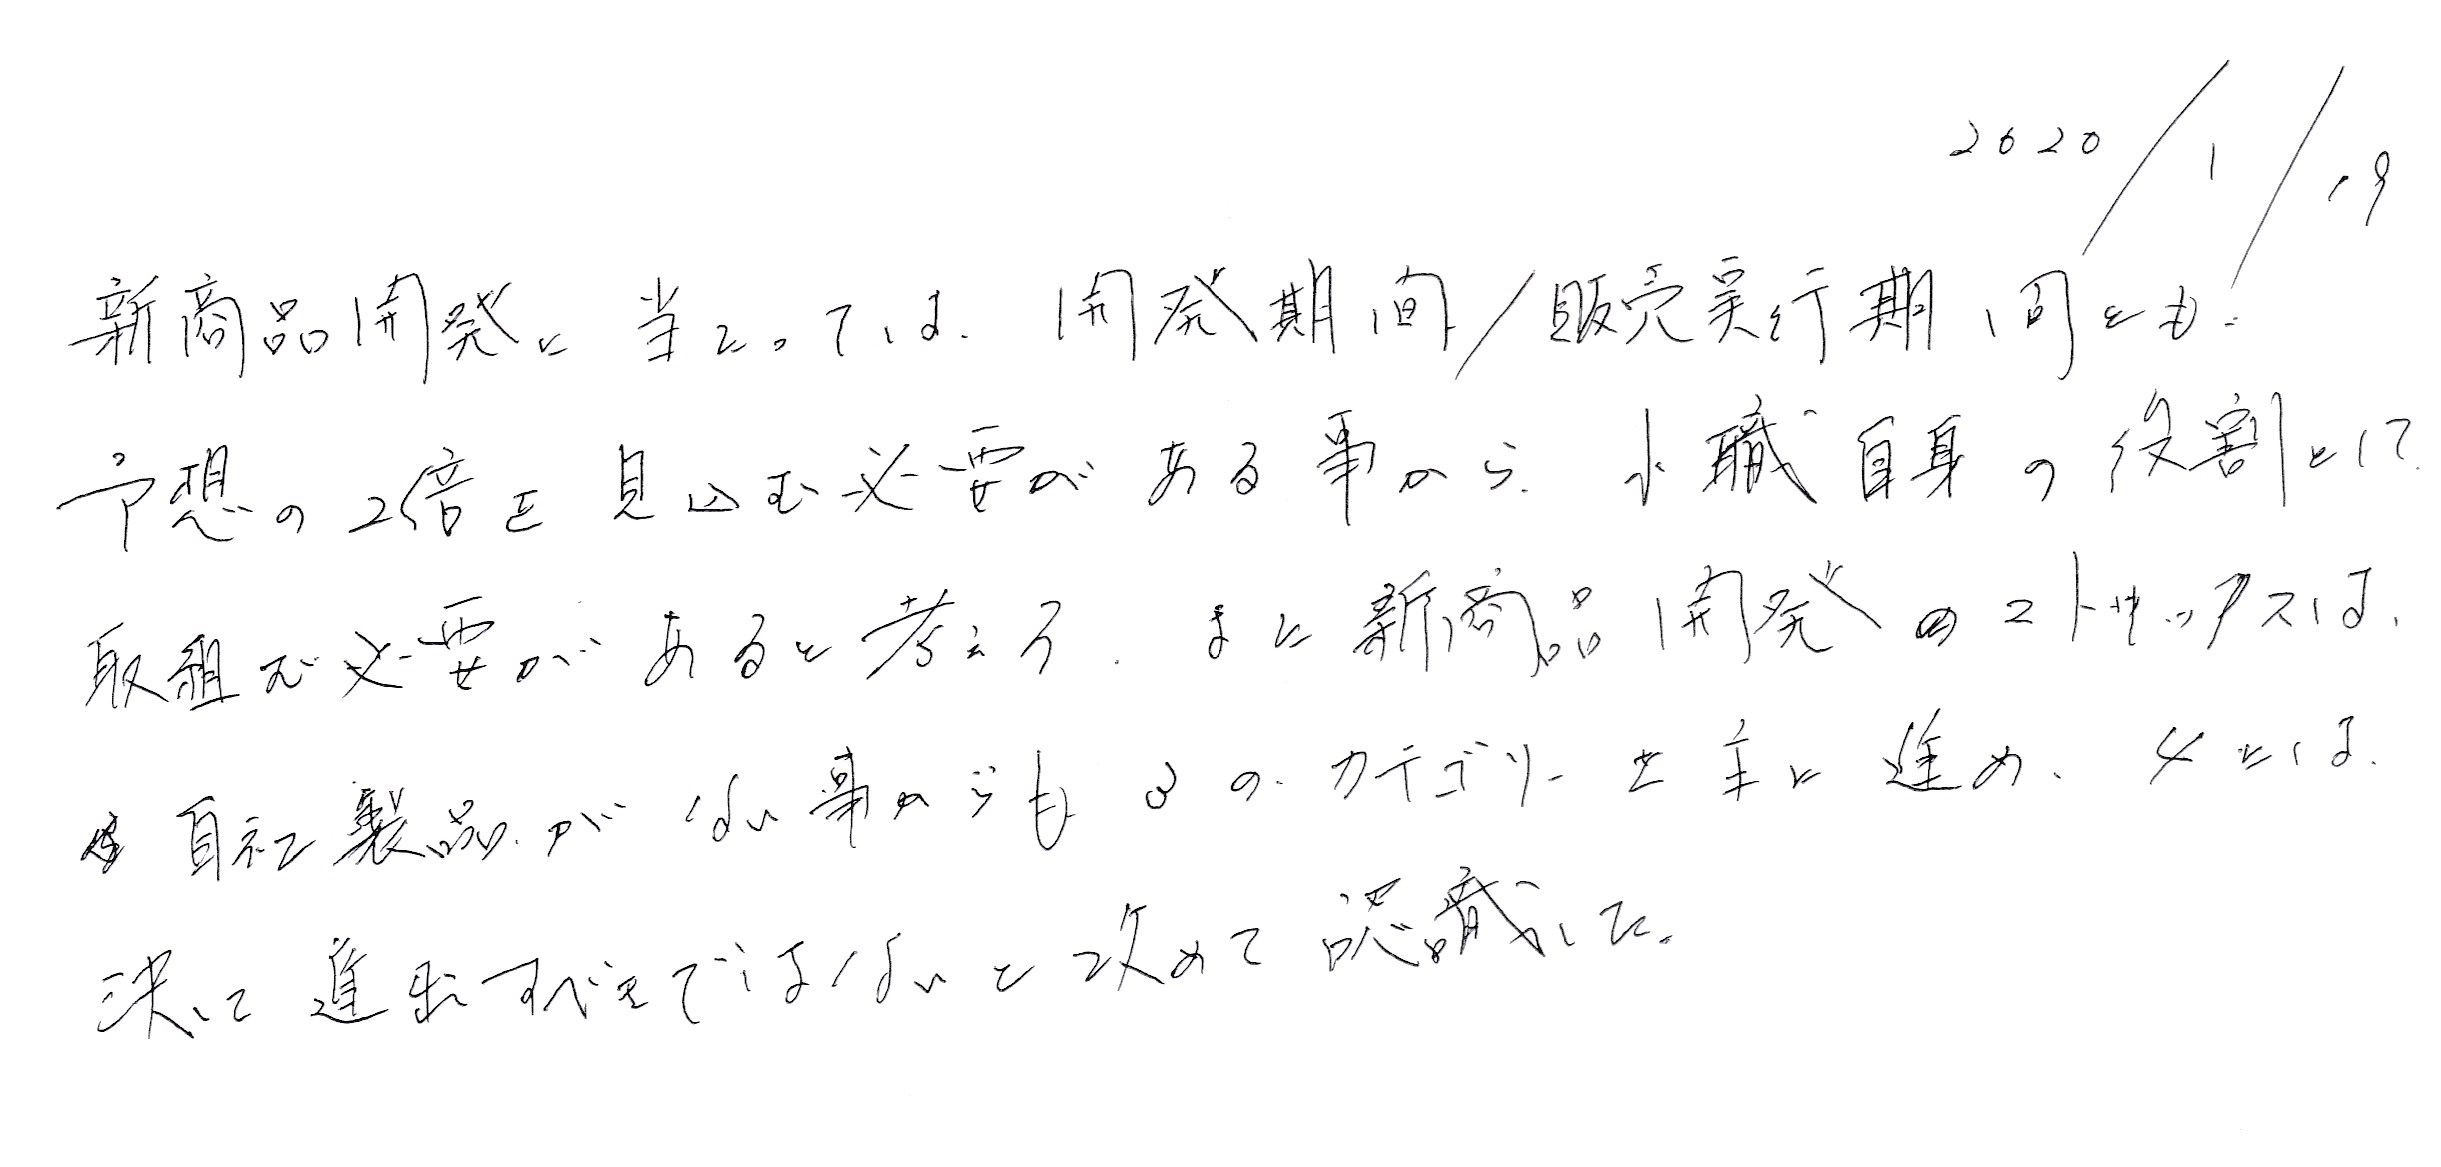 2020/1/19
新商品開発に当たっては、開発期間/販売実行期間とも、
予想の2倍を見込む必要がある事から、小職自身の役割として
取組む必要があると考える。また新商品開発のマトリックスは、
自社製品がない事からも3のカテゴリーを主に進め、4には、
決して進出すべきではないと改めて認識した。